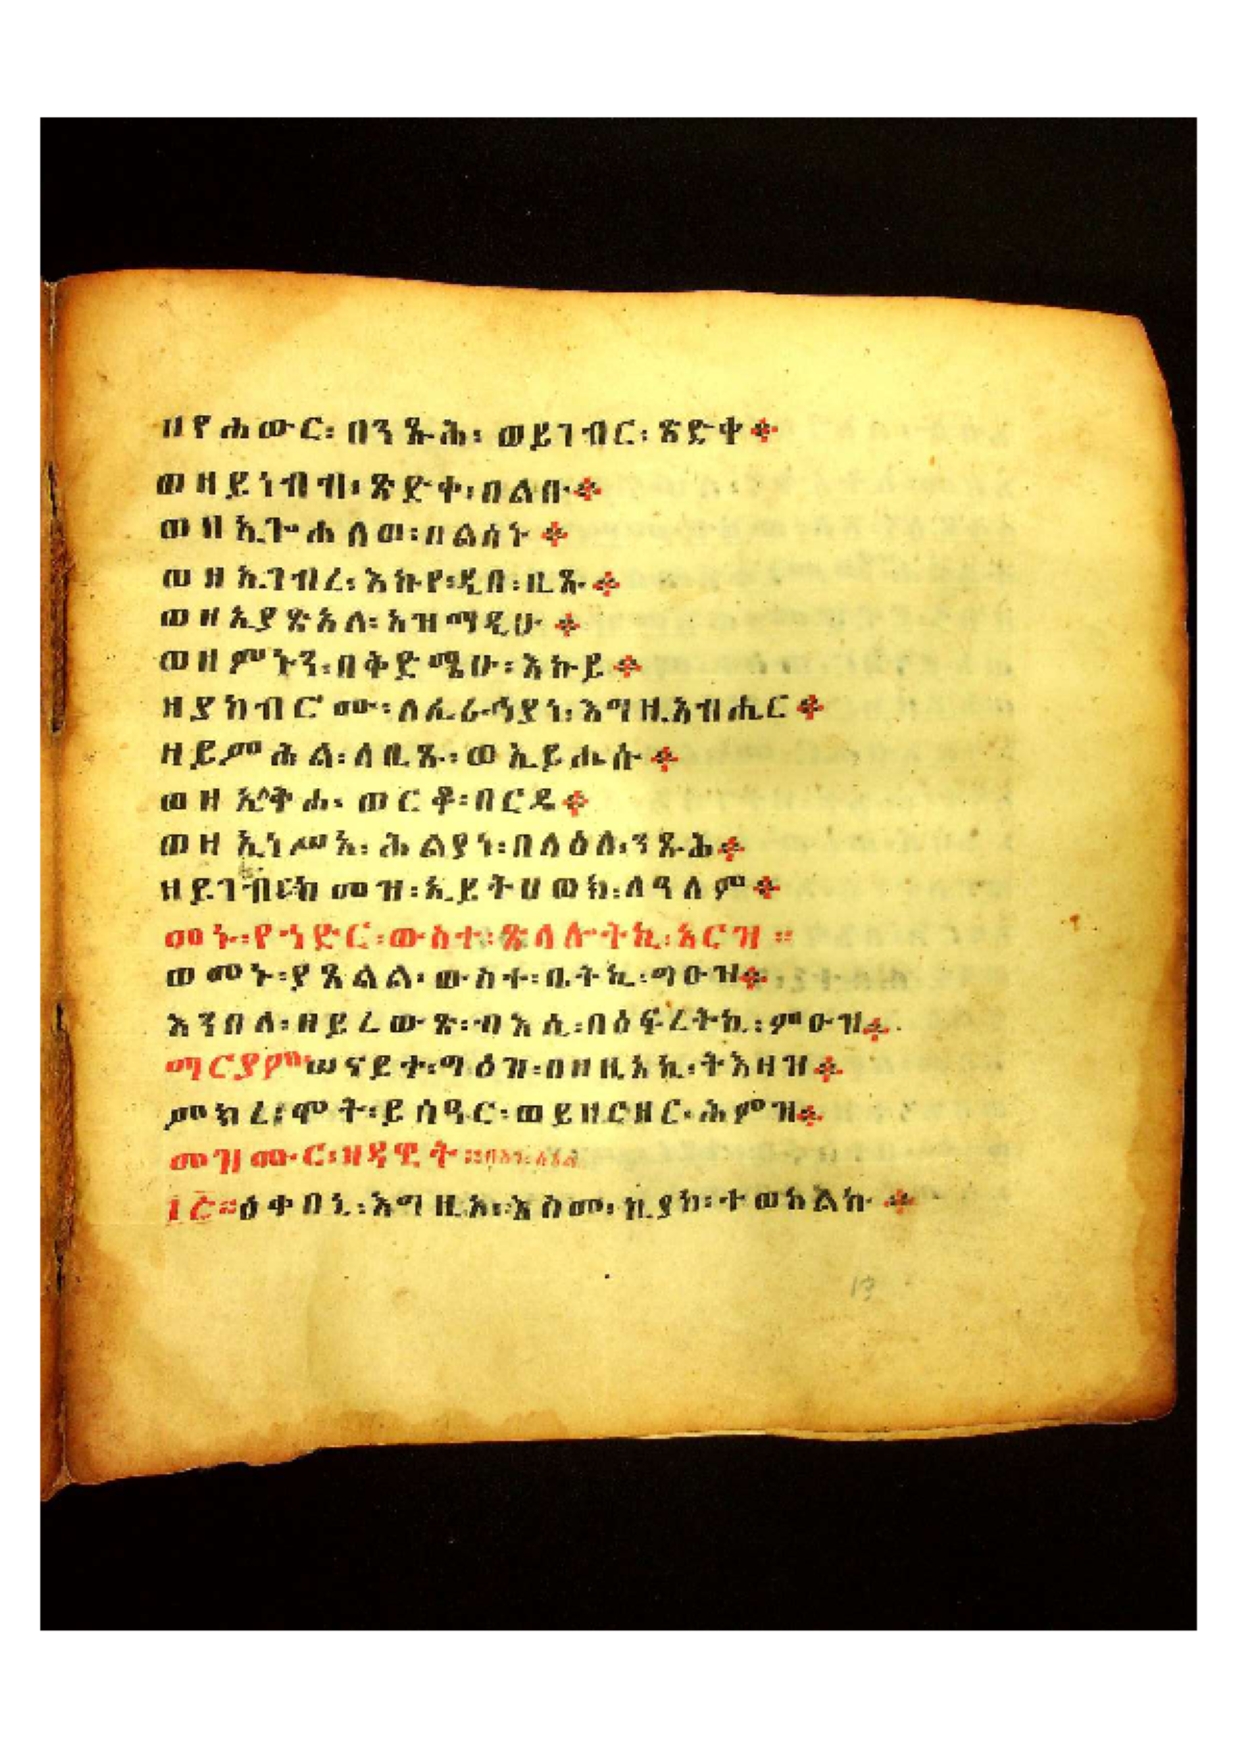 ዘየሐውር፡ በንጹሕ፡ ወይገብር፡ ጽድቀ።
ወዘይነብብ፡ ጽድቀ፡ በልቡ።
ወዘኢጐሐለወ፡ በልሳኑ።
ወዘኢገብረ፡ እኩየ፡ ዲበ፡ ቢጹ።
ወዘኢያጽአለ፡ አዝማዲሁ።
ወዘምኑን፡ በቅድሜሁ፡ እኩይ።
ዘያከብሮሙ፡ ለፈራህያነ፡ እግዚአብሔር።
ዘይምሕል፡ ለቢጹ፡ ወኢይሔሱ።
ወዘኢለቅሐ፡ ወርቆ፡ በርዴ።
ወዘኢነሥአ፡ ሕልያነ፡ በላዕለ፡ ንጹሕ።
ዘይገብር፡ ከመዝ፡ ኢይትሀወክ፡ ለዓለም።
መኑ፡ የኀድር፡ ውስተ፡ ጽላሎትኪ፡ አርዝ።
ወመኑ፡ ያጼልል፡ ውስተ፡ ቤትኪ፡ ግዑዝ።
እንበለ፡ ዘይረውጽ፡ ብእሲ፡ በዕፍረትኪ፡ ምዑዝ።
ማርያም፡ ሠናይተ፡ ግዕዝ፡ በዘዚአኪ፡ ትእዛዝ።
ምክረ፡ ሞት፡ ይሰዓር፡ ወይዘርዘር፡ ሕምዝ።
መዝሙር፡ ዘዳዊት።
፲፭። ዕቀበኒ፡ እግዚኦ፡ እስመ፡ ኪያከ፡ ተወከልኩ።